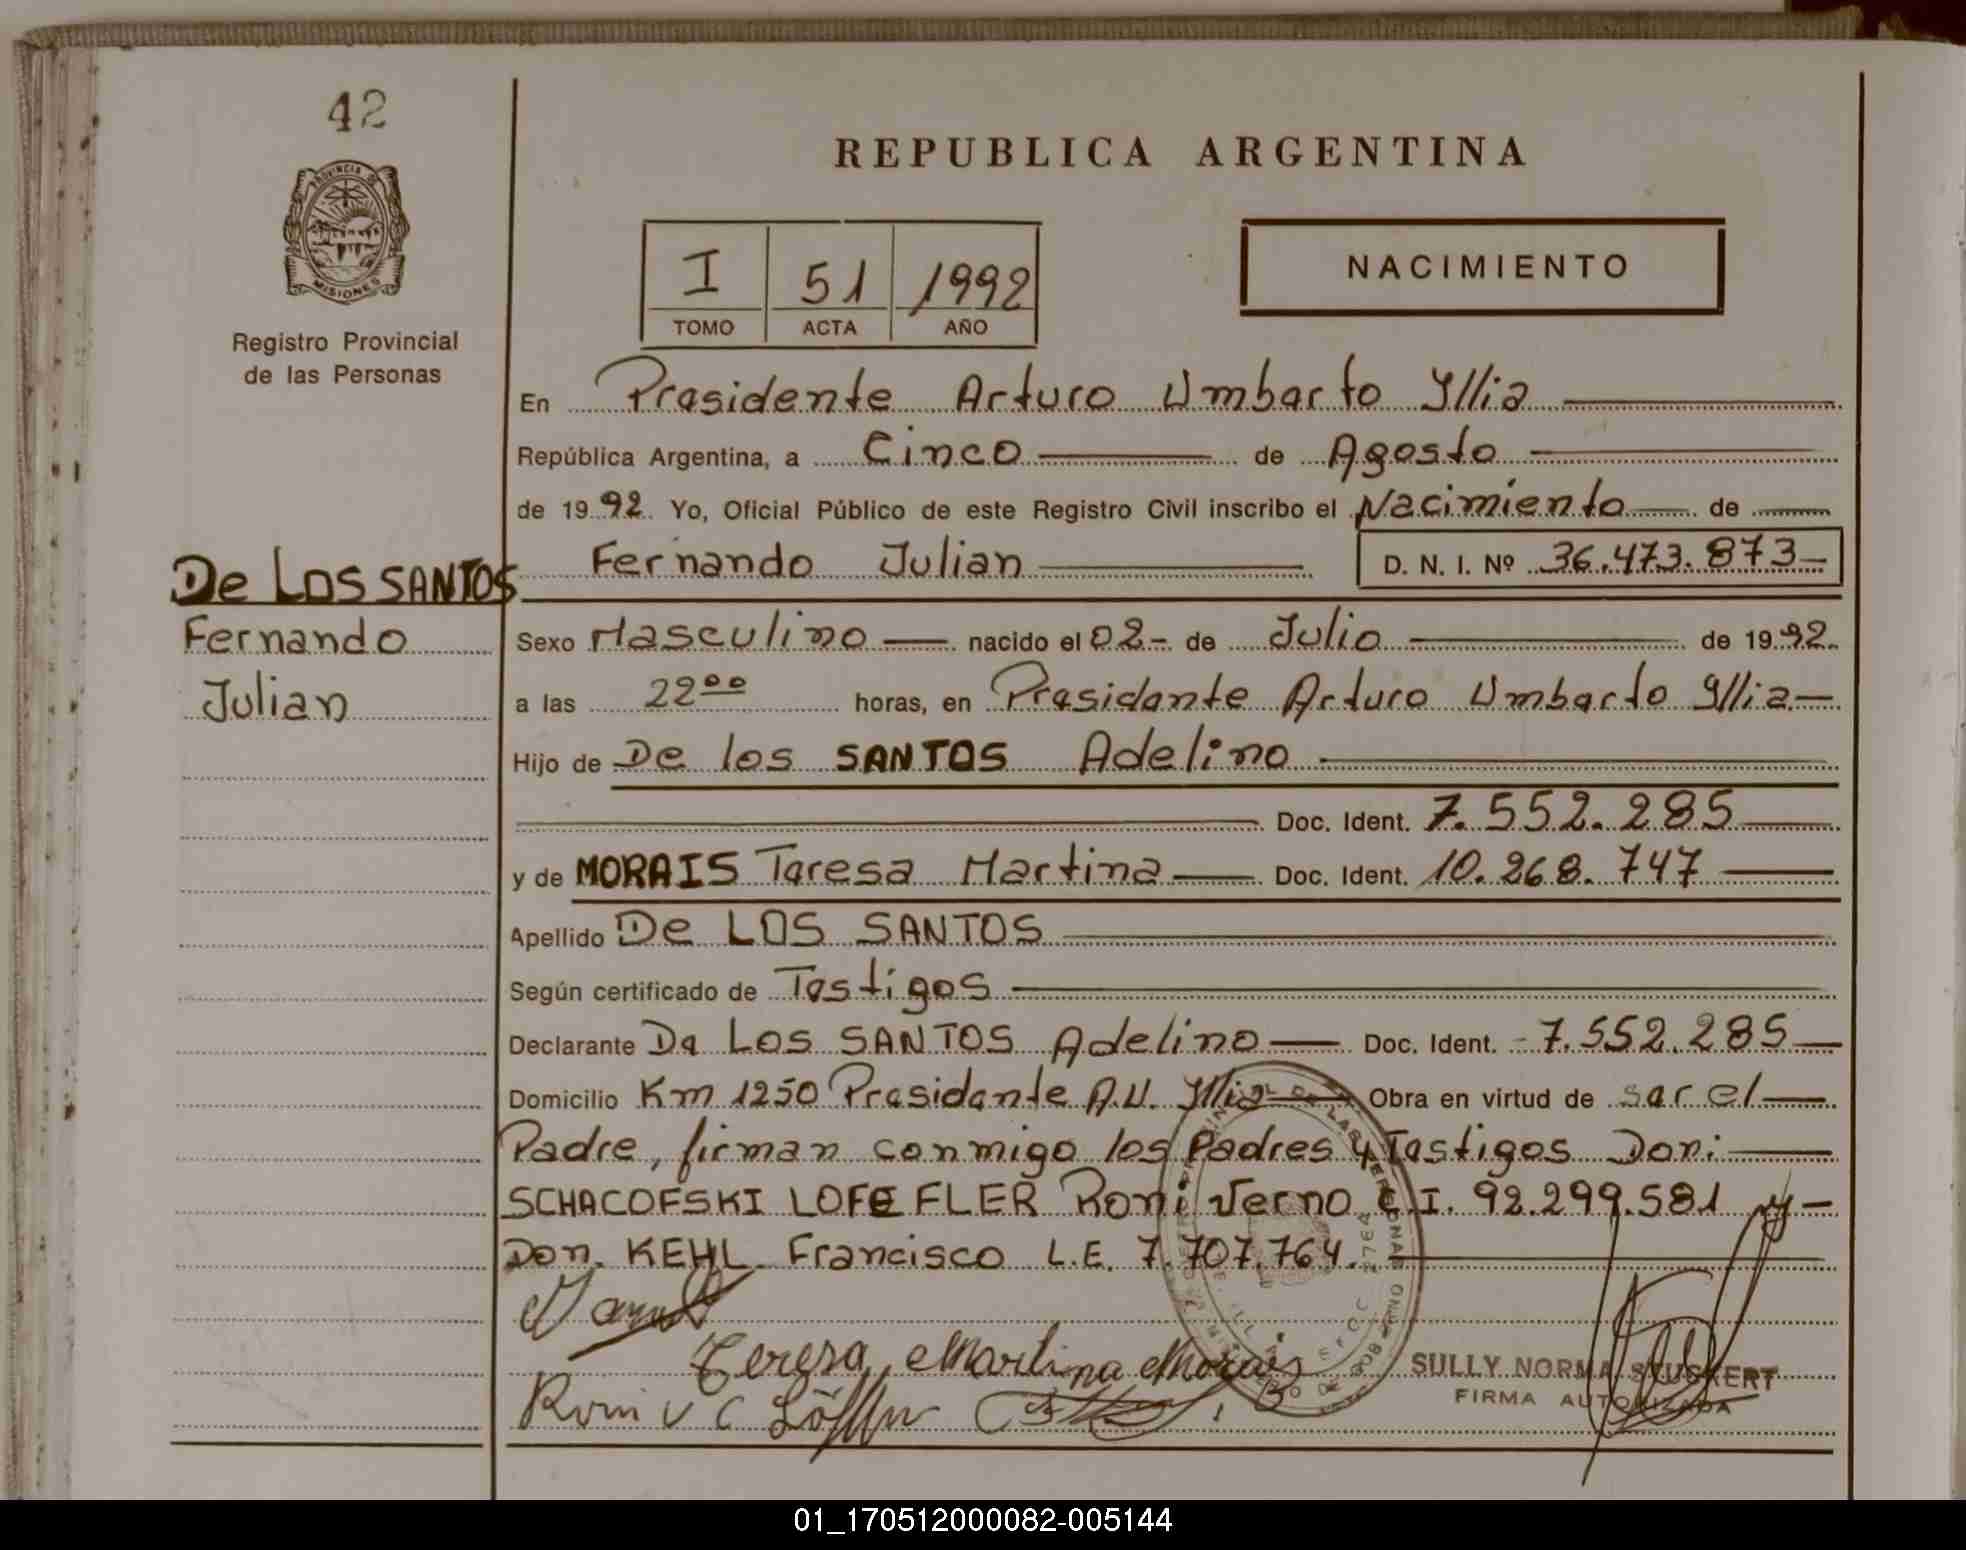 42
REPUBLICA ARGENTINA
PROVINCIA DE
MISIONES
Registro Provincial
de las Personas
I 51 1992
TOMO ACTA AÑO
NACIMIENTO
En Presidente Arturo Umberto Yllia
República Argentina, a Cinco de Agosto
de 1992 Yo, Oficial Público de este Registro Civil inscribo el Nacimiento de
Fernando Julian D. N. I. Nº 36.473.873
De LOS SANTOS
Fernando
Julian
Sexo Masculino nacido el 02 de Julio de 1992.
a las 22⁰⁰ horas, en Presidente Arturo Umberto Yllia
Hijo de De los SANTOS Adelino
Doc. Ident. 7.552.285
y de MORAIS Teresa Martina Doc. Ident. 10.268.747
Apellido De LOS SANTOS
Según certificado de Testigos
Declarante De LOS SANTOS Adelino Doc. Ident. 7.552.285
Domicilio Km 1250 Presidente A.U. Yllia Obra en virtud de ser el
Padre, firman conmigo los Padres y Testigos Don:
SCHACOFSKI LOFEFLER Roni Verno C.I. 92.299.581 y
Don. KEHL Francisco L.E. 7.707.764.
Teresa Martina Morais
SULLY NORMA STUCKERT
FIRMA AUTORIZADA
Roni V C Löffler
01_170512000082-005144